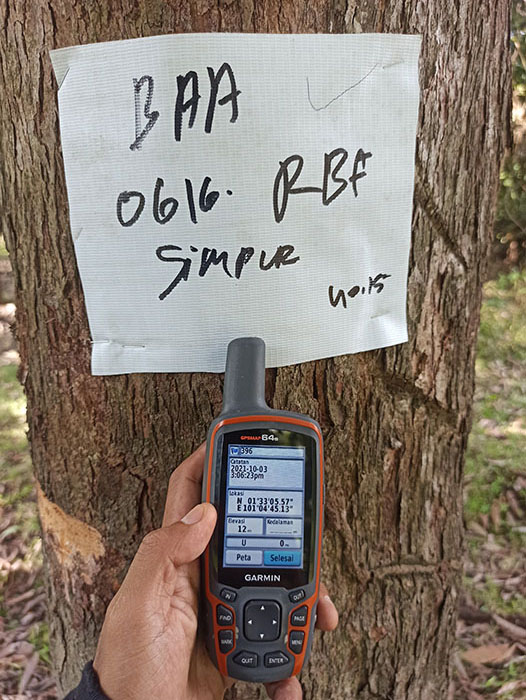 BAA
0616. RBF
SIMPUR
40.15
GPSMAP 64s
396
Catatan
2021-10-03
3:06:23pm
Lokasi
N 01°33'05.57"
E 101°04'45.13"
Elevasi Kedalaman
12
U 0
Peta Selesai
GARMIN
IN OUT
FIND PAGE
MARK MENU
QUIT ENTER